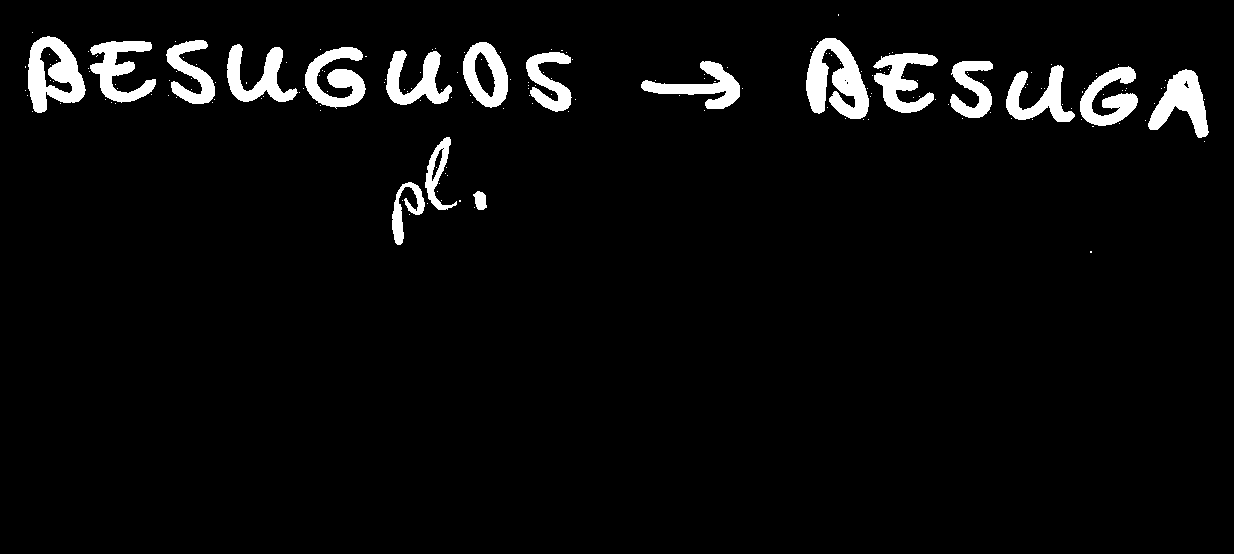 BESUGUOS → BESUGA
pl.